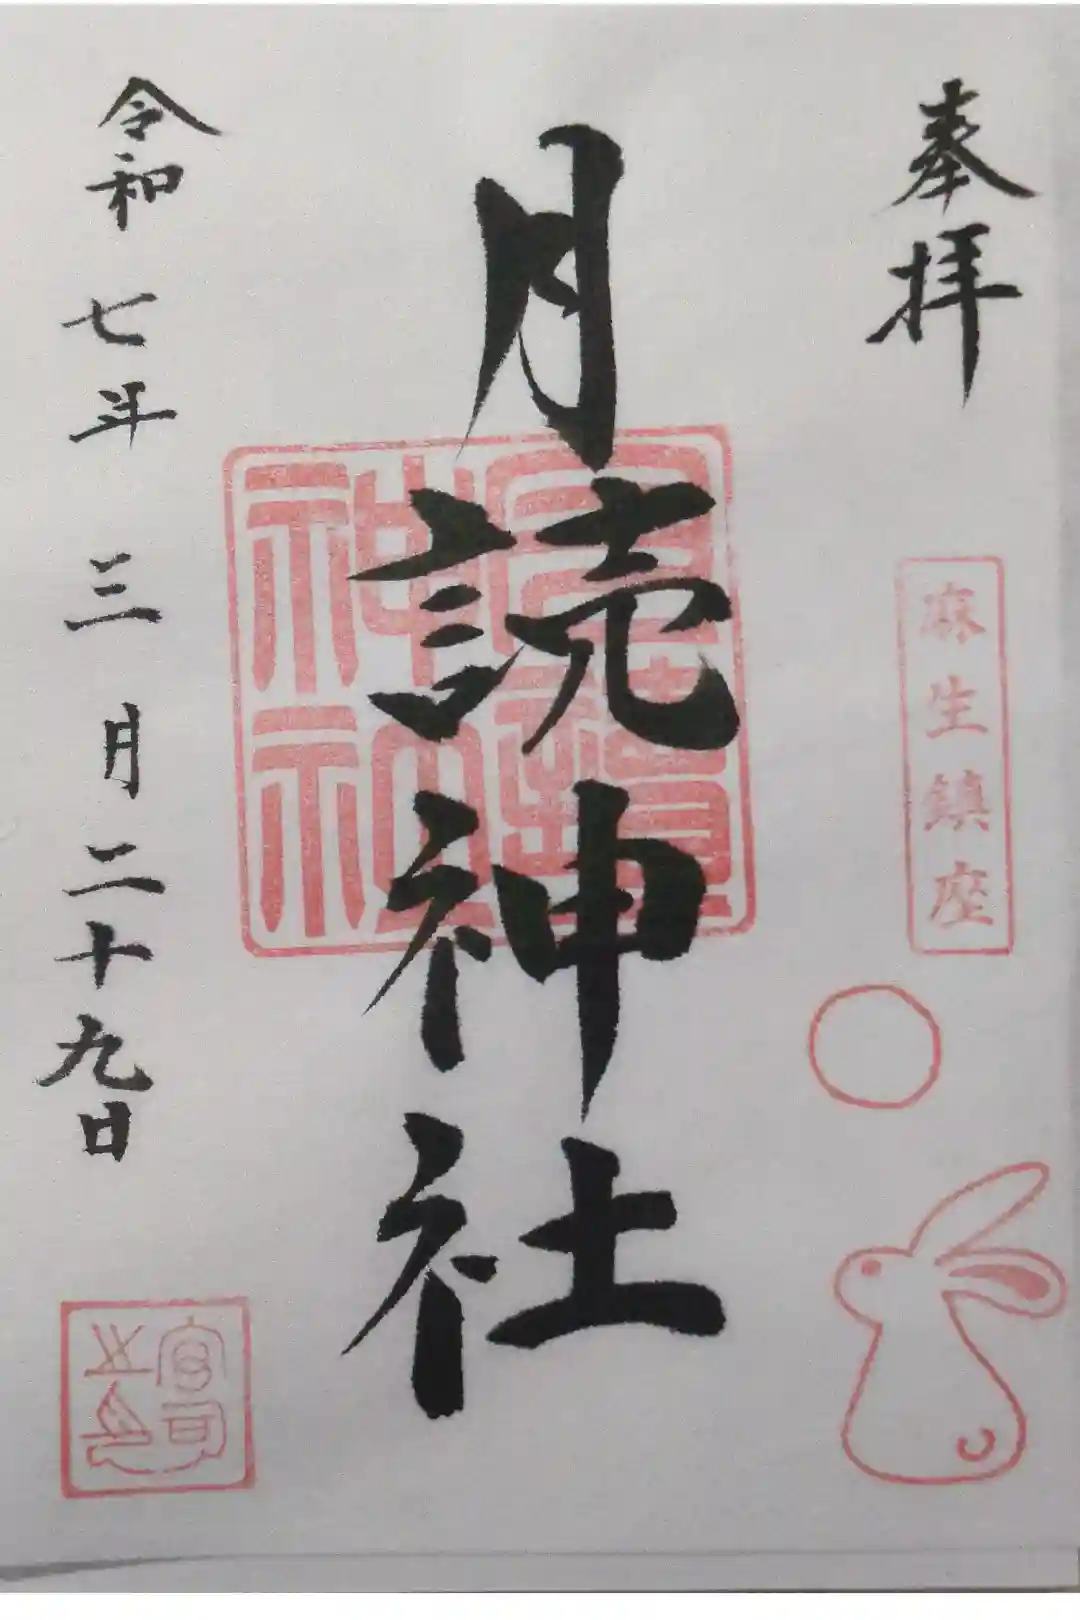 奉拝
麻生鎮座
月読神社
令和七年三月二十九日
宮司之印